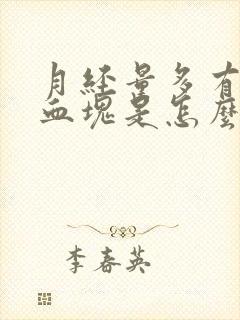 月经量多有
血块是怎麼
李春英